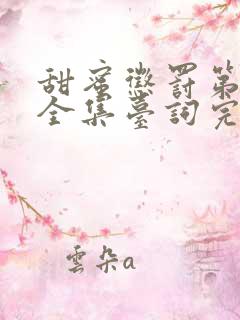 甜蜜懲罰第
全集臺詞完
雲朵a